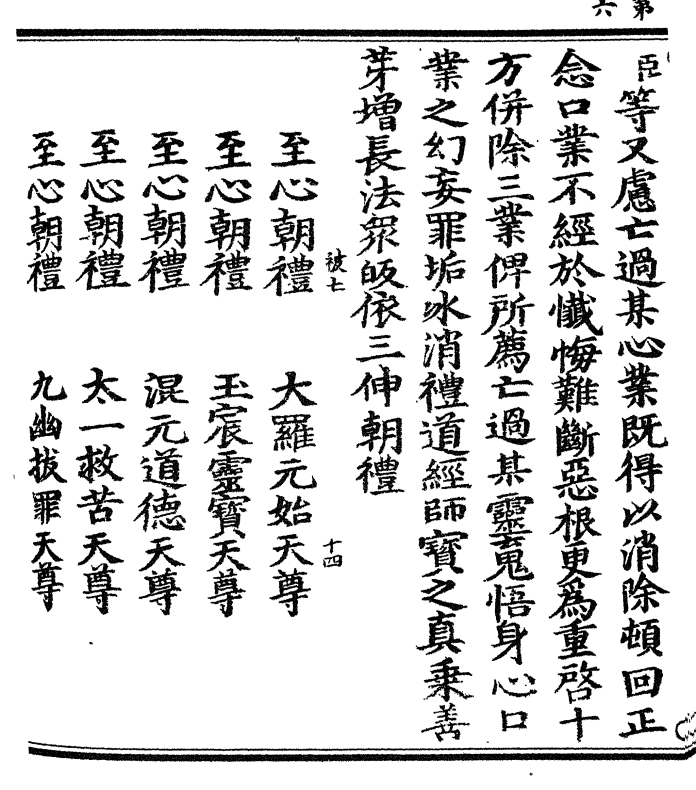 第六
臣等又慮亡過某心業既得以消除頓回正
念口業不經於懺悔難斷惡根更爲重啓十
方併除三業俾所薦亡過某靈䰟悟身心口
業之幻妄罪垢氷消禮道經師寶之真乗善
芽增長法衆皈依三伸朝禮
至心朝禮 大羅元始天尊
被七 十四
至心朝禮 玉宸靈寶天尊
至心朝禮 混元道德天尊
至心朝禮 太一救苦天尊
至心朝禮 九幽拔罪天尊